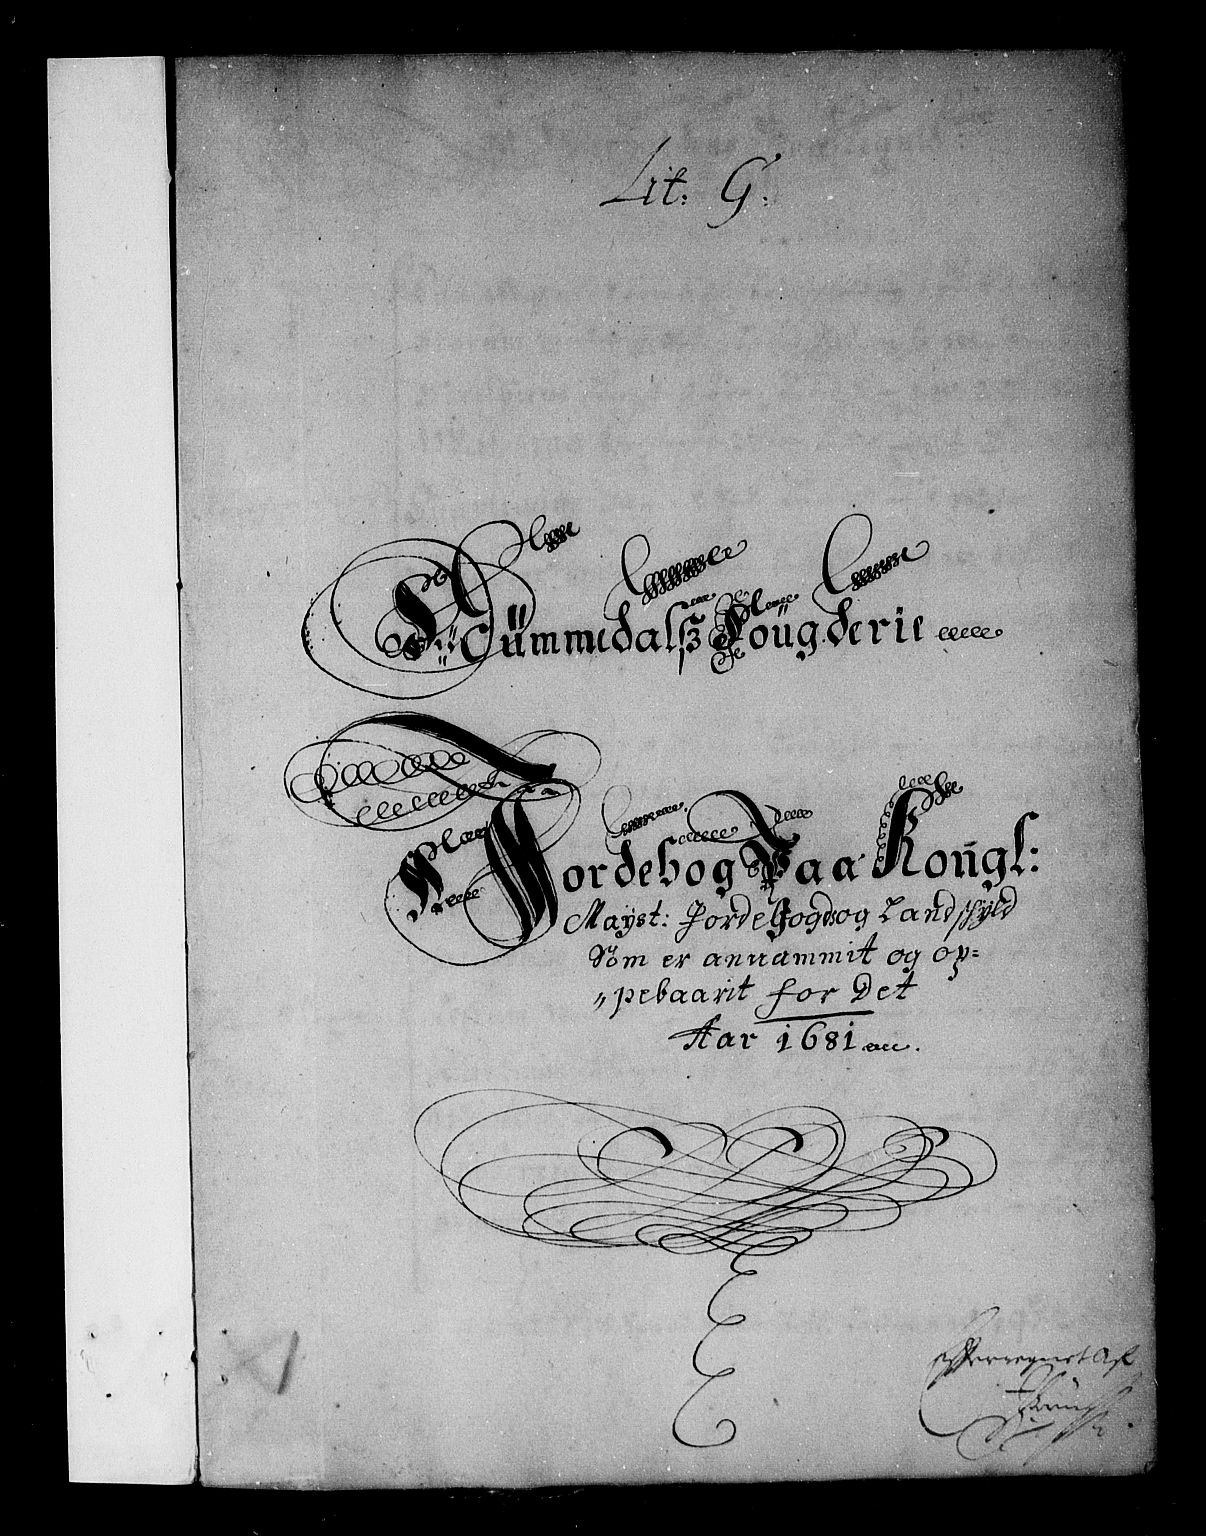 Lit. G.
Nummedalß Fougderie
Jordebog Paa Kongl:
Mayst: Jordegodsog Landskyld
Som er annammit og op=
"pebaarit for Det
Aar 1681
efterregnet Af